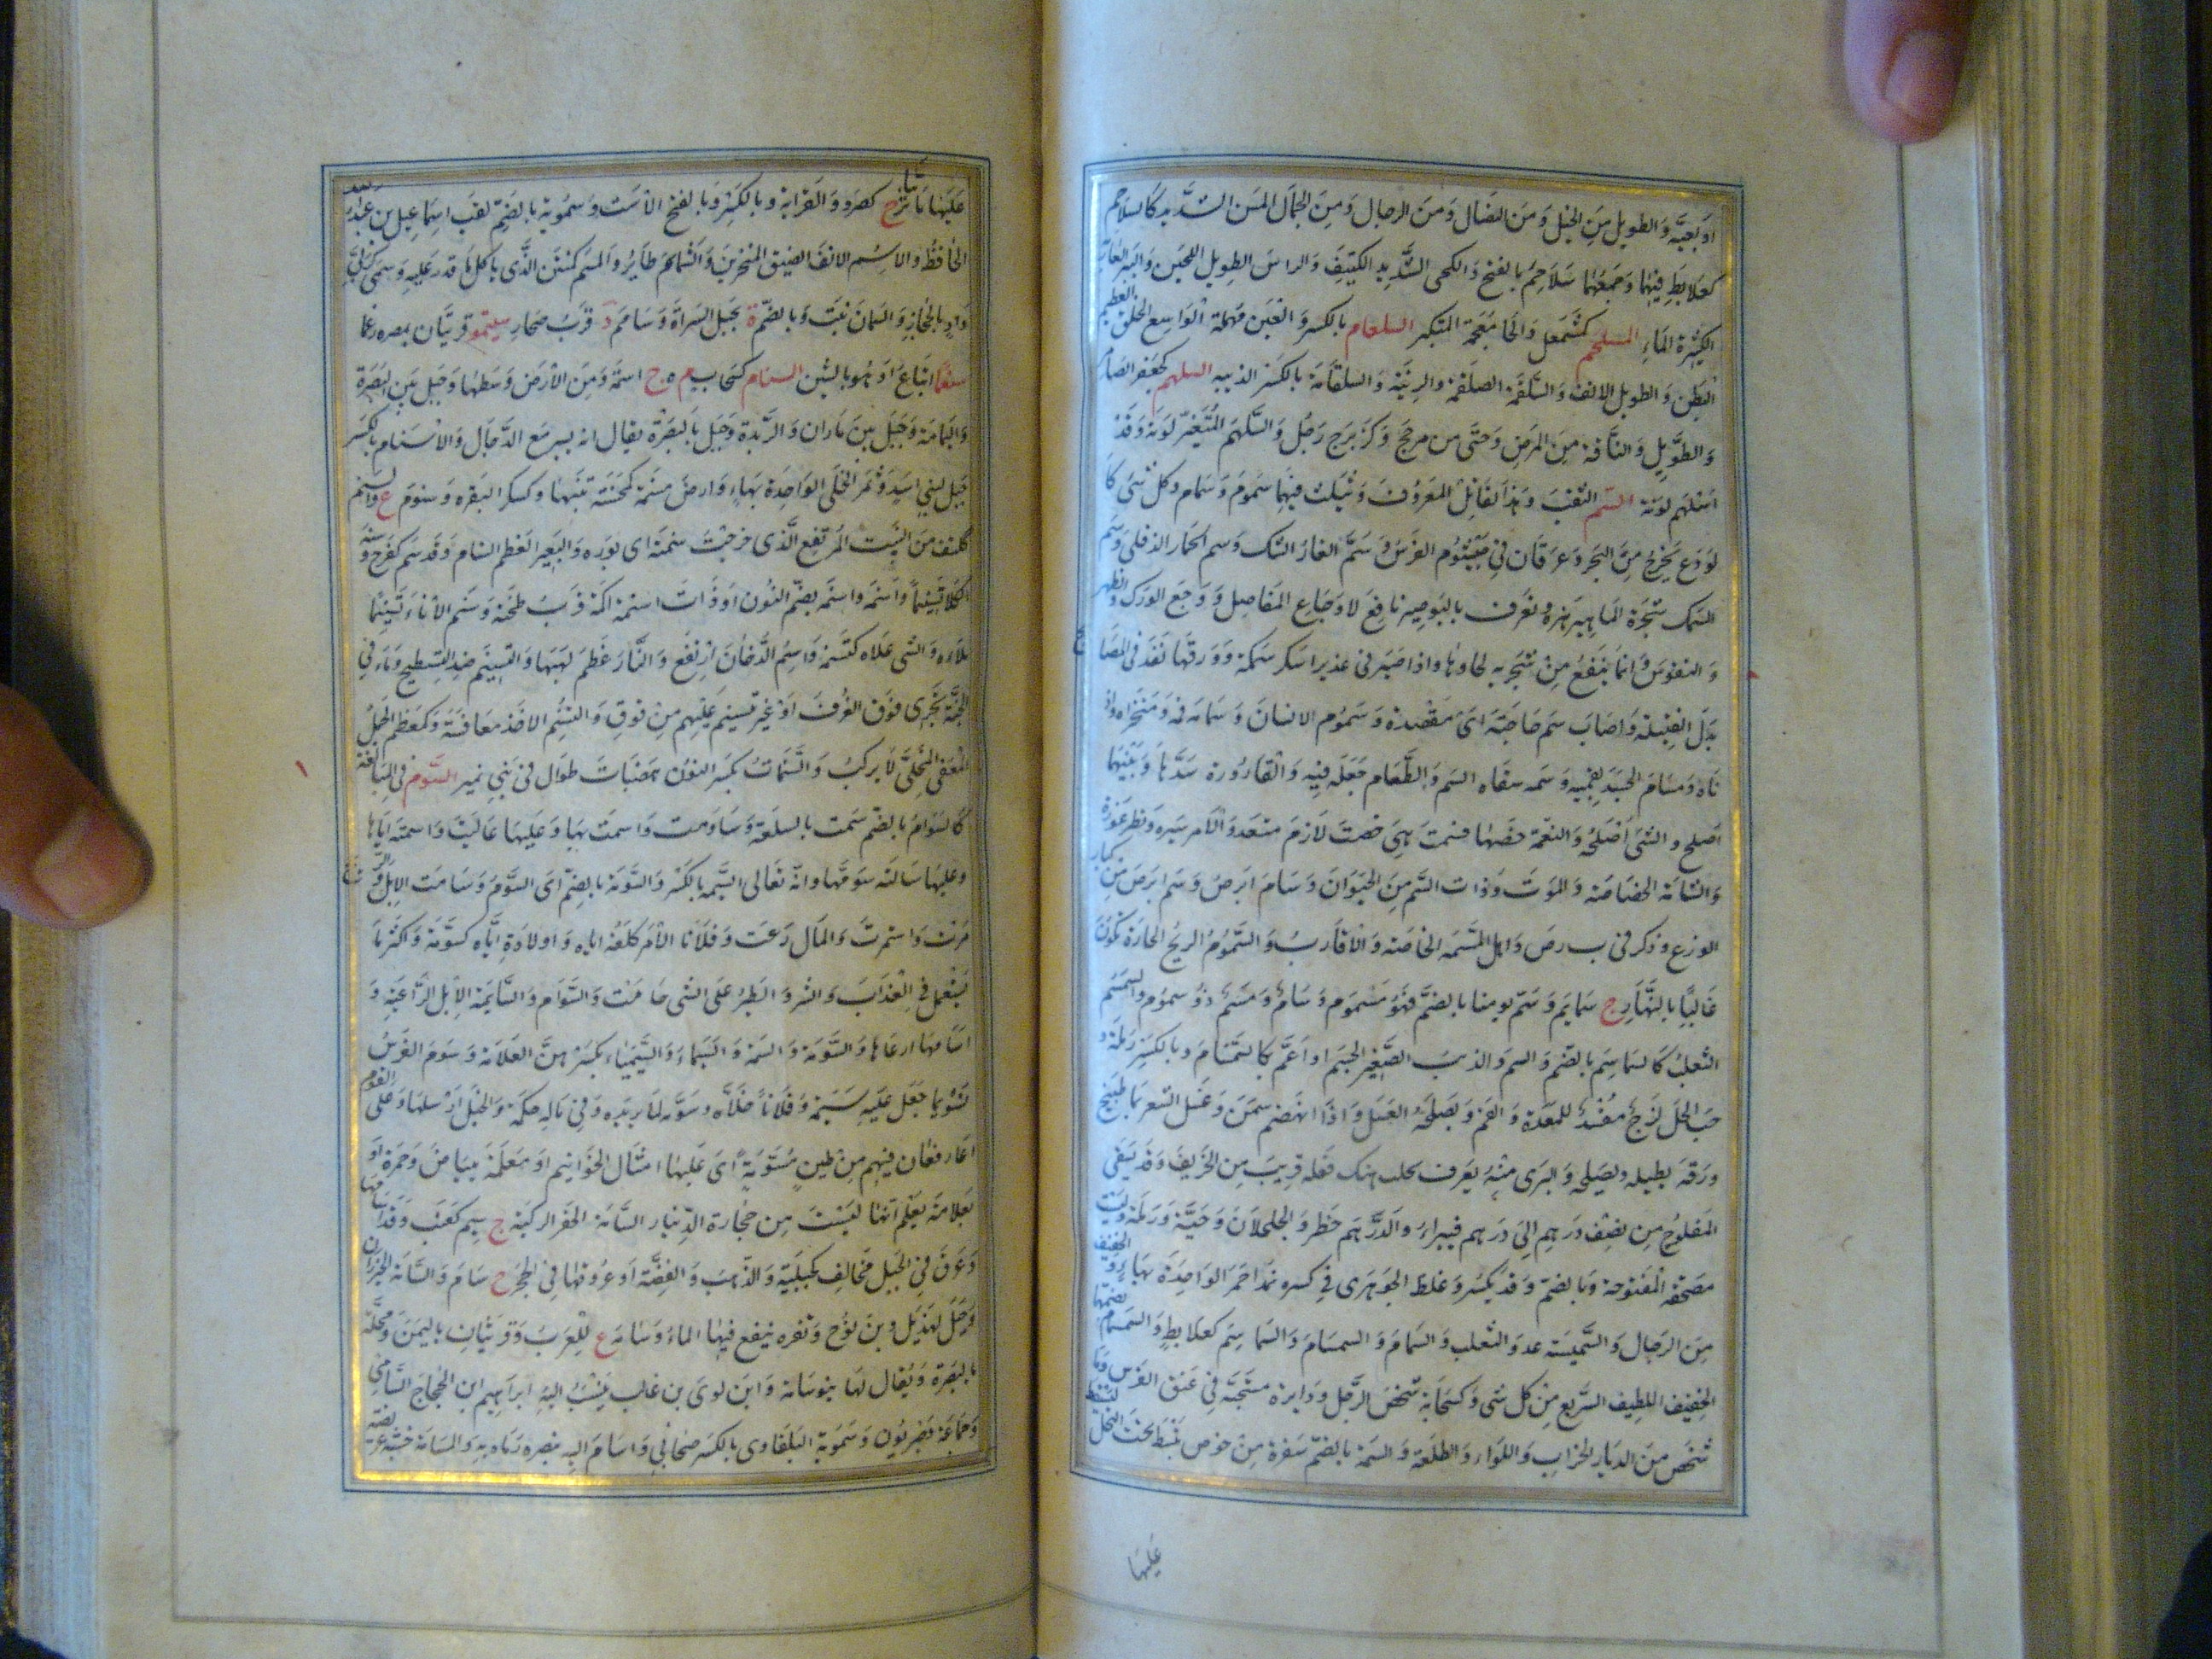 اوبعيّة والطويل من الخيل ومن النصال ومن الرجال ومن الجمال المسن الشديد كالسلاحم
كعلابط فيهما وجمعهما سلاحم بالفتح والكمى الشديد الكثيف والراس الطويل اللحيين والبير العادية
الكثيرة الماء المسلخم كمشمعل والخا معجمة المتكبر السلعام بالكسر والغين مهملة الواسع الحلق العظيم
البطن والطويل الانف والسلقمة الصلقمة والريبة والسلقامة بالكسر الذيبه السلهم كجعفر الضامر
والطويل والناقه من المرض وحتى من مرجج وكزبرج رجل والسلهم المتغير لونه وقد
اسلهم لونه السّم الثقب وهذا القاتل المعروف ويثلث فيهما سموم وسمام وكل شى كا
لودع يخرج من البحر وعرقان فى خيشوم الفرس وسم الفار الشك وسم الحمار الدفلى وسم
السمك شجرة الماهيزهره وتعرف بالبوصير نافع لاوجاع المفاصل ووجع الورك والظهر
والنقرس وانما ينفع من شجرته لحاوها واذا صير فى غدير اسكر سمكه وورقها نفذ فى المصا
بدل الفتيلة واصاب سم حاجته اى مقصده وسموم الانسان وسمامه فمه ومنخراه واذ
ناه ومسام الجسد ثقبه وسمه سقاه السم والطعام جعله فيه والقارورة سدها وبينهما
اصلح والشى اصلحه والنعمة خصها فسمت هى خصت لازم متعد والامر سبره ونظر غوره
والسامة الخاصة والموت وذات السم من الحيوان وسام ابرص وسم ابرص من كبار
الوزغ وذكر فى ب رص واهل المسمة الخاصة والاقارب والسموم الريح الحارة تكون
غالبًا بالنهار ج سمايم وسم يومنا بالضم فهو مسموم وسام ومسم ذو سموم والسمسم
الثعلب كالسماسم بالضم والسم والذيب الصغير الجسم او اعم كالسمسام وبالكسر رملة و
حب الحل لزج مفسد للمعدة والفم ويصلحه العسل واذا انهضم سمن وغسل الشعر بماء طبيخ
ورقه يطيله ويصلحه والبرى منه يعرف بجلبهنك فعله قريب من الخربق وقد يسقى
المفلوج من نصف درهم الى درهم فيبراء والدرهم خطر والجلجلان وحية ورملة وليست
مصحفة المفتوحة وبالضم وقد يكسر وغلط الجوهرى فى كسره نمل احمر الواحدة بهاء والخفيف
من الرجال والسميسة عدو الثعلب والسمام والسمسام والسماسم كعلابط والسمسام بضمهما
الخفيف اللطيف السريع من كل شى وكسحابة شخص الرجل ودايرة مستحبة فى عنق الفرس وما
شخص من الديار الخراب واللواء والطلعة والسمة بالضم سفرة من خوص تبسط تحت النخل لتسقط
عليها
عليها ما تناثر ج كصرد والقرابة وبالكسر وبالفتح الاست وسموية بالضم لقب اسماعيل بن عبد الله
الحافظ والاسم الانف الضيق المنخرين والسمايم طاير والمسم كمسن الذى ياكل ما قدر عليه وسمى كربى
واد بالحجاز والسمان نبت وبالضمة ة بجبل السراة وسامم د قرب صحار سلتمو قريتان بمصر رغما
سنغما اتباع او هو بالشين السنام كسحاب م ج اسنمة ومن الارض وسطها وجبل بين البصرة
واليمامة وجبل بين ماوان والربذة وجبل بالبصرة يقال انه يسير مع الدجال والاسنام بالكسر
جبل لبنى اسد وثمر الحلى الواحدة بهاء وارض مسنمة كمحسنة تنبتها وكسكر البقره وسنوم ع والسنم
ككتف من النبت المرتفع الذى خرجت سنمته اى نوره والبعير العظم السنام وقد سنم كفرح وسنمه
الكلا تسنيمًا واسنمه واسنمة بضم النون او ذات اسنمة اكمة قرب طخفة وسنم الاناء تسنيمًا
ملاءه والشى علاه كتسنمه واسنم الدخان ارتفع والنار عظم لهبها والتسنيم ضد التسطيح وماء فى
الجنة يجرى فوق الغرف او غير تسنيم عليهم من فوق والتسنم الاخذ مغافسة وكمعظم الجمل
المعفى المخلى لا يركب والسنمات بكسر النون هضبات طوال فى بنى نمير السوم فى المبايعة
كالسوام بالضم سمت بالسلعة وساومت واسمت بها وعليها غاليت واسمته اياها
وعليها سالته سومها وانه لغالى السيمة بالكسر والسومة بالضم اى السوم وسامت الابل والريح
مرت واستمرت والمال رعت وفلانا الامر كلفه اياه واولاده اياه كسومه واكثر ما
يستعمل فى العذاب والشر والطير على الشى حامت والسوام والسايمة الابل الراعية و
اسامها ارعاها والسومة والسمة والسيماء والسيمياء بكسرهن العلامة وسوم الفرس
تسويما جعل عليه سيمة وفلانًا خلاه وسومه لما يريده وفى ماله حكمه والخيل ارسلها وعلى القوم
اغار فعاث فيهم من طين مسومة اى عليها امثال الخواتيم او معلمة ببياض وحمرة او
بعلامة يعلم انها ليست من حجارة الدنيا والسامة الحفر الركية ج سيم كعنب وقد اسامها
وعرق فى الجبل مخالف كجبليته والذهب والفضة او عروقها فى الحجر ج سام والسام الخيزران
وجبل لهذيل وبن نوح ونقره ينقع فيها الماء وسامة ع للعرب وقريتان باليمن ومحلة
بالبصرة ويقال لها بنو سامة وابن لوى بن غالب ينسب اليه ابراهيم بن الحجاج السامى
وجماعة بصريون وسموية البلقاوى بالكسر صحابى واسام اليه ببصره رماه به والسامة خشبة عريضة